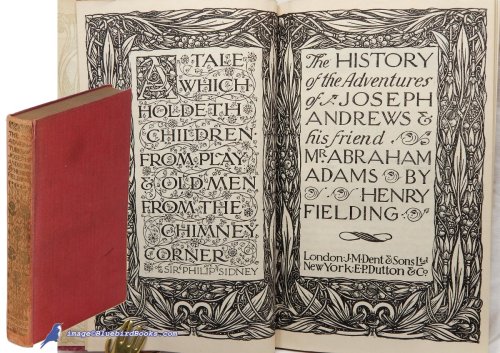 A TALE
WHICH
HOLDETH
CHILDREN
FROM PLAY
& OLD MEN
FROM THE
CHIMNEY
CORNER
SIR PHILIP SIDNEY
The HISTORY
of the Adventures
of JOSEPH
ANDREWS &
his friend
MR. ABRAHAM
ADAMS BY
HENRY
FIELDING
London: J. M. Dent & Sons Ltd
New York: E. P. Dutton & Co
image@BluebirdBooks.com